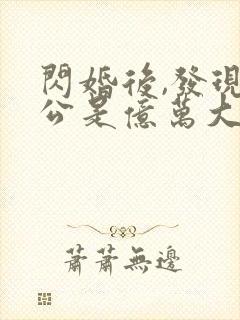 閃婚後,發現
公是億萬大
蕭蕭無邊